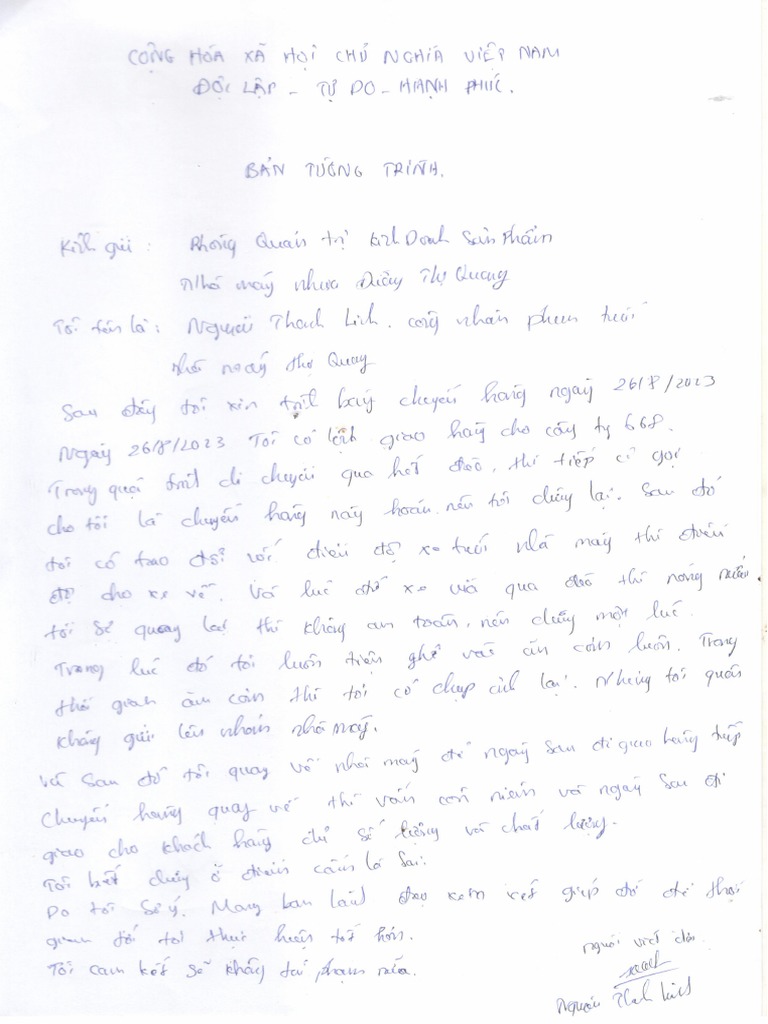 CỘNG HÓA XÃ HỘI CHỦ NGHĨA VIỆT NAM
ĐỘC LẬP - TỰ DO - HẠNH PHÚC.
BẢN TƯỜNG TRÌNH.
Kính gửi : Phòng Quản trị Kinh Doanh Sản Phẩm
Nhà máy nhựa Thọ Quang
Tôi tên là : Nguyễn Thanh Lich. công nhân
Thọ Quang
Sau đây tôi xin trình bày chuyến hàng ngày 26/8/2023
Ngày 26/8/2023 Tôi có lệnh giao hàng cho công ty 668.
Trong quá trình di chuyển qua hết đèo, thì tiếp gọi
cho tôi là chuyến hàng này hoãn nên tôi dừng lại. Sau đó
tôi có trao đổi với điều độ xe nhà máy thì điều
độ cho xe về. Và lúc đó xe vừa qua đèo thì nóng
tôi sợ quay lại thì không an toàn, nên dừng một lúc.
Trong lúc đó tôi luôn tiện ghé vào ăn cơm luôn. Trong
thời gian ăn cơm thì tôi có chụp ảnh lại. Nhưng tôi quên
không gửi lên nhóm nhà máy.
Và sau đó tôi quay về nhà máy để ngày sau đi giao hàng tiếp
Chuyến hàng quay về thì vẫn còn và ngày sau đi
giao cho khách hàng đủ số lượng và chất lượng.
Tôi biết dừng ở điểm cấm là sai.
Do tôi sơ ý. Mong ban lãnh đạo xem xét giúp đỡ để thời
gian tới tôi thực hiện tốt hơn.
Tôi cam kết sẽ không tái phạm nữa.
người viết đơn
Nguyễn Thanh Lich